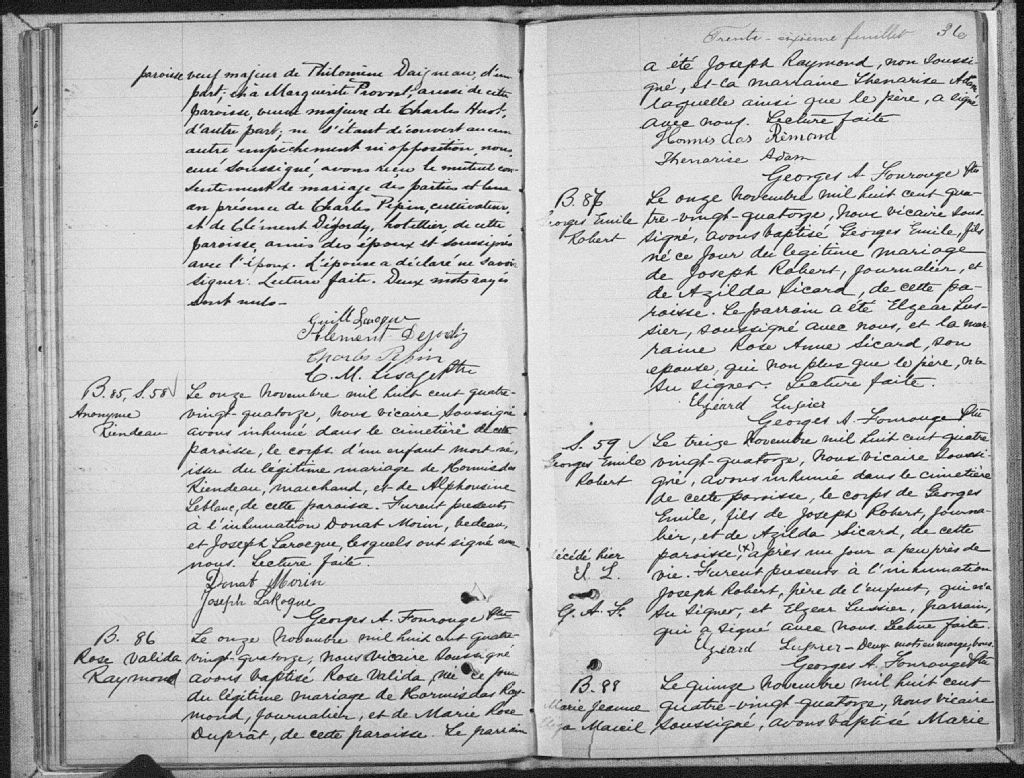 paroisse veuf majeur de Philomène Daigneau, d'une
part; et à Marguerite Provost, aussi de cette
paroisse, veuve majeure de Charles Huot,
d'autre part; ne s'étant découvert aucun
autre empêchement ni opposition, nous,
curé soussigné, avons reçu le mutuel con-
sentement de mariage des parties et
en présence de Charles Pepin, cultivateur,
et de Clément Déjordy, hôtellier, de cette
paroisse, amis des époux et soussignés
avec l'époux. L'épouse a déclaré ne savoir
signer. Lecture faite. Deux mots rayés
sont nuls -
Clément Dejordy
Charles Pepin
C. M. Lesage Ptre
B. 85, S. 58
Anonyme
Riendeau
Le onze Novembre mil huit cent quatre-
vingt-quatorze, nous vicaire soussigné
avons inhumé dans le cimetière de cette
paroisse, le corps d'un enfant mort-né,
issu du légitime mariage de Hormisdas
Riendeau, marchand, et de Alphonsine
Leblanc, de cette paroisse. Furent présents
à l'inhumation Donat Morin, bedeau,
et Joseph Larocque, lesquels ont signé avec
nous. Lecture faite.
Donat Morin
Joseph LaRoque
Georges A. Fourouge Ptre
B. 86
Rose Valida
Raymond
Le onze Novembre mil huit cent quatre-
vingt-quatorze, nous vicaire soussigné
avons baptisé Rose Valida, née ce jour
du légitime mariage de Hormisdas Ray-
mond, journalier, et de Marie Rose
Duprat, de cette paroisse. Le parrain
Trente-sixième feuillet 36
a été Joseph Raymond, non soussi-
gné, et la marraine Thenarise Adam
laquelle ainsi que le père, a signé
avec nous. Lecture faite
Hormis das Rémond
Thenarise Adam
Georges A. Fourouge Ptre
B. 87
Georges Emile
Robert
Le onze Novembre mil huit cent qua-
tre-vingt-quatorze, nous vicaire sous-
signé, avons baptisé Georges Emile, fils
né ce jour du légitime mariage
de Joseph Robert, journalier, et
de Azilda Sicard, de cette pa-
roisse. Le parrain a été Elzear Lus-
sier, soussigné avec nous, et la mar-
raine Rose Anne Sicard, son
épouse, qui non plus que le père, n'a
su signer. Lecture faite.
Elzéard Lussier
Georges A. Fourouge Ptre
S. 59
Georges Emile
Robert
Le treize Novembre mil huit cent quatre
vingt-quatorze, nous vicaire soussi-
gné, avons inhumé dans le cimetière
de cette paroisse, le corps de Georges
Emile, fils de Joseph Robert, journa-
lier, et de Azilda Sicard, de cette
décédé hier
paroisse, (x) après un jour à peu près de
vie. Furent présents à l'inhumation
Joseph Robert, père de l'enfant, qui n'a
G. A. F.
su signer, et Elzear Lussier, parrain,
qui a signé avec nous. Lecture faite.
Elzéard Lussier - Deux mots en marge, bons.
Georges A. Fourouge Ptre
B. 88
Marie Jeanne
Maucil
Le quinze Novembre mil huit cent
quatre-vingt quatorze, nous vicaire
soussigné, avons baptisé Marie